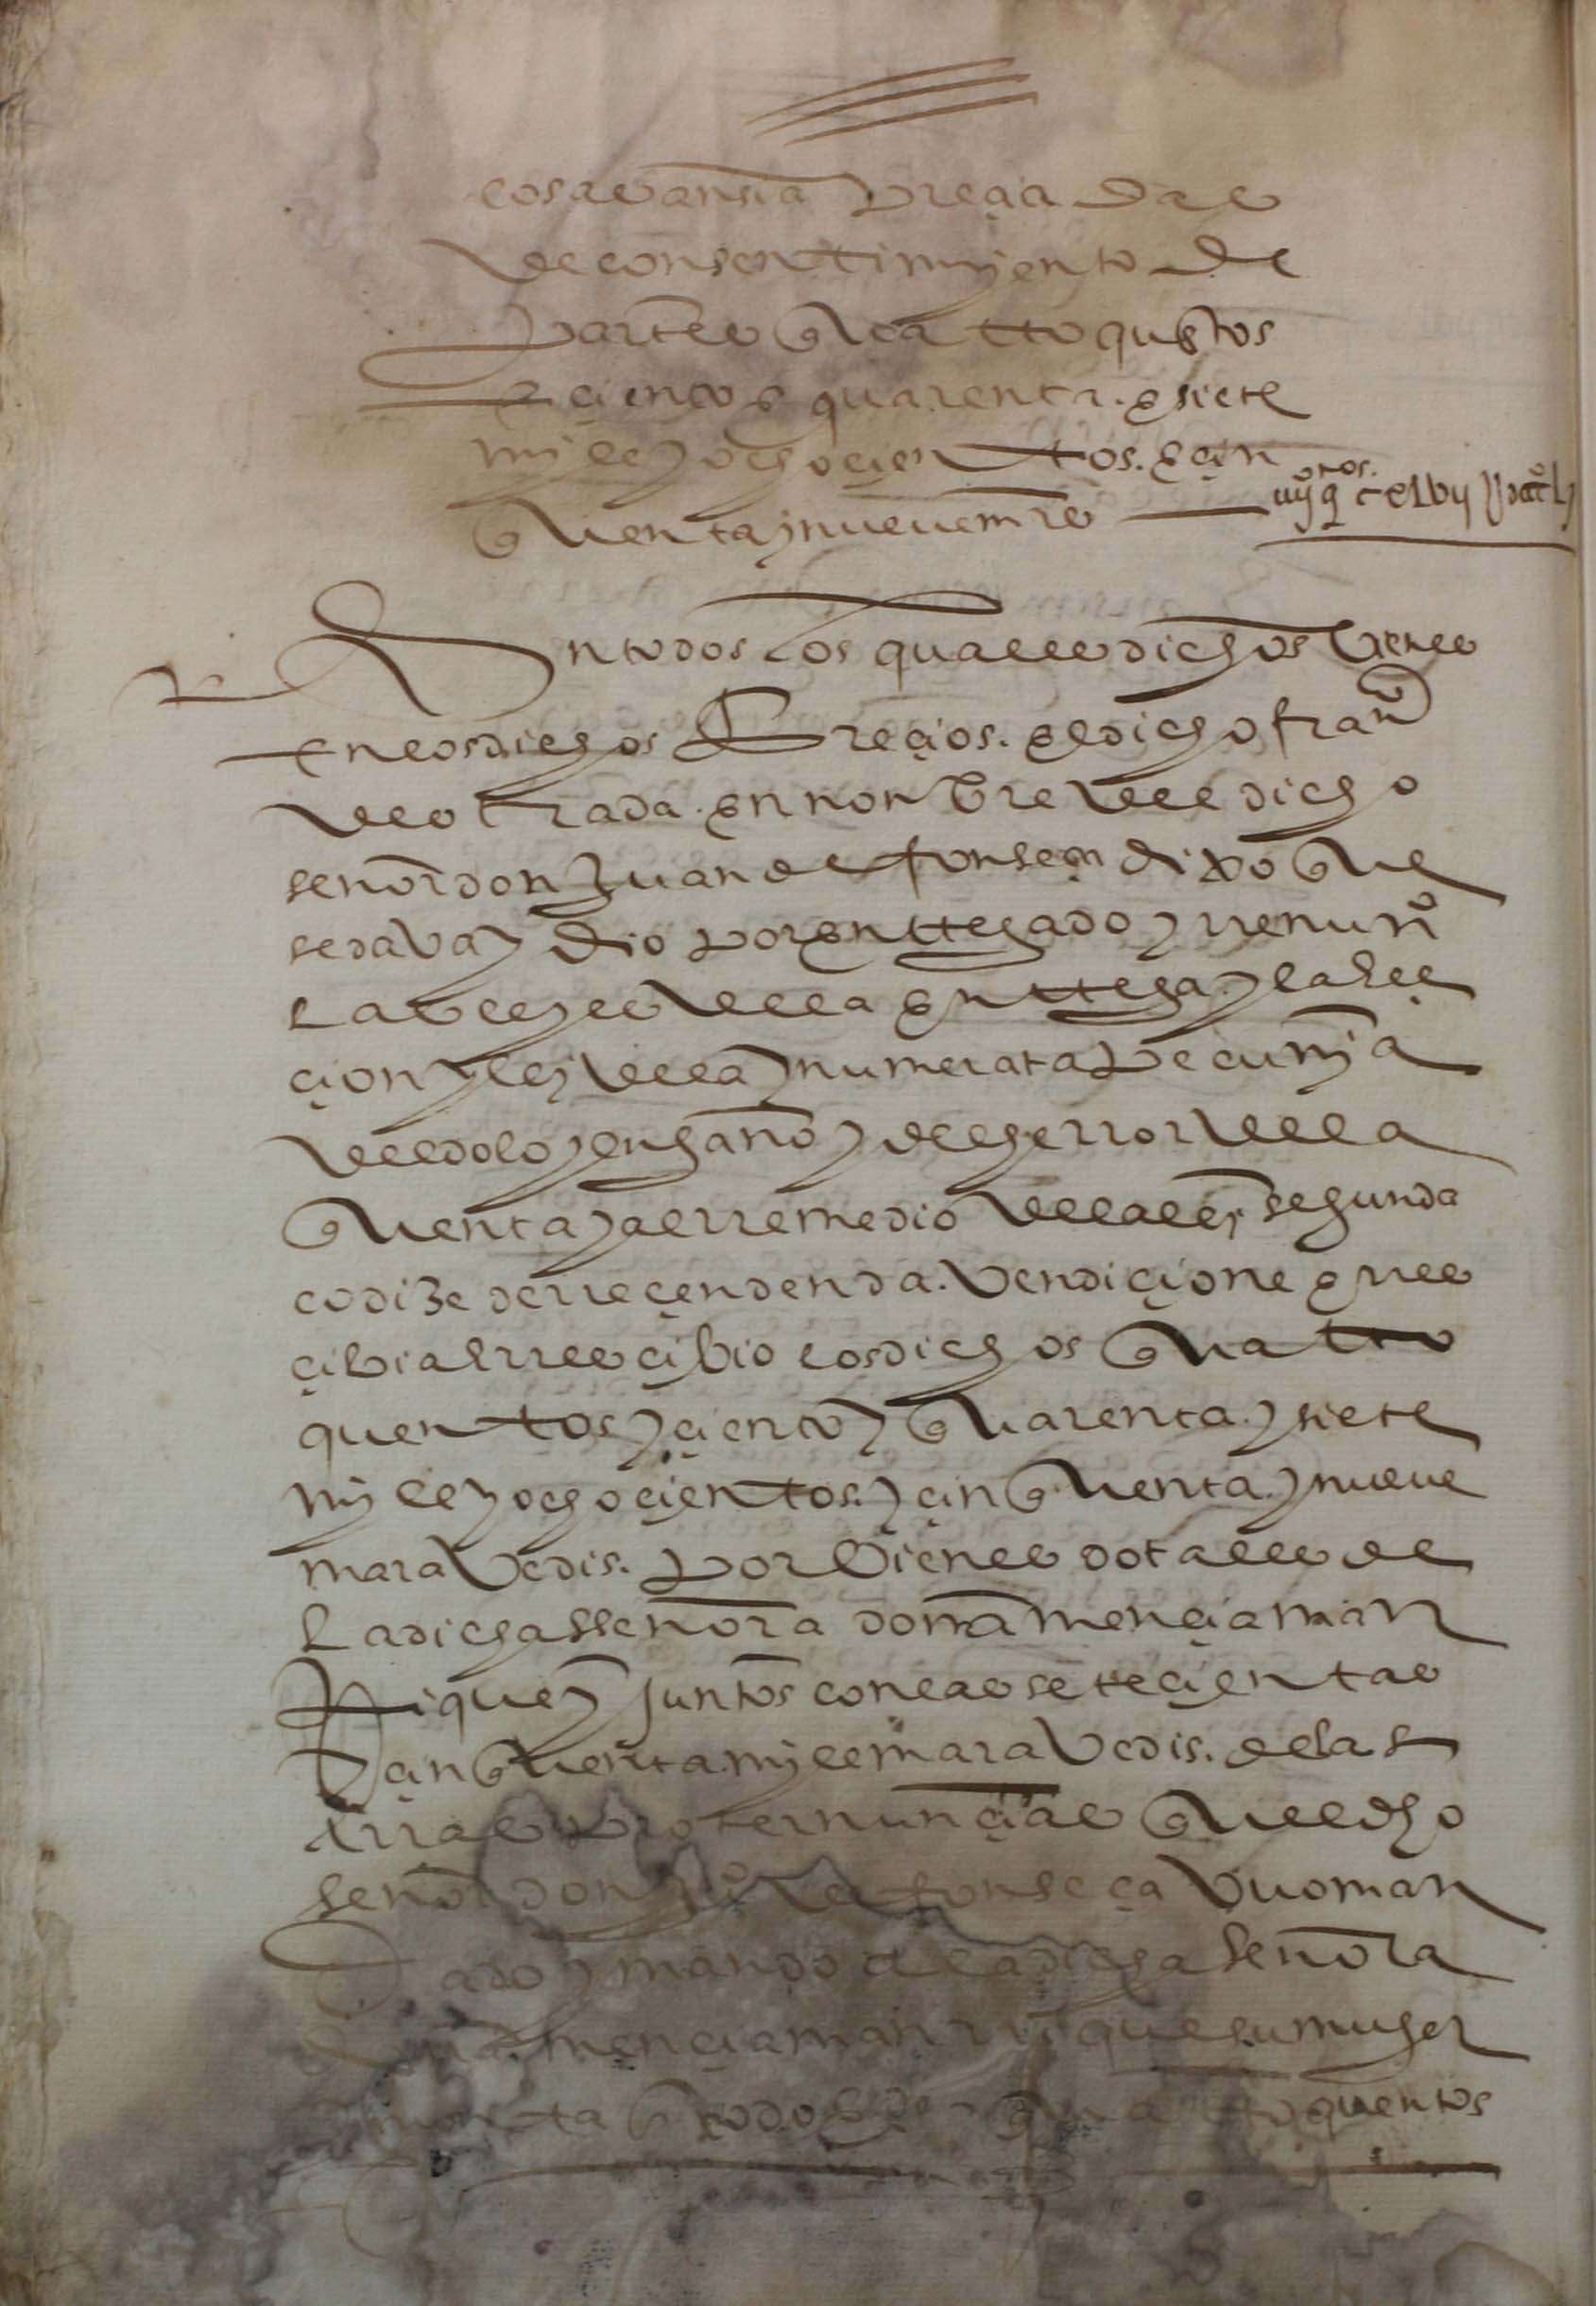 cosas ansia preçiadas
de consentimiento de
partes quatro quentos
e ciento e quarenta e siete
mill y ochocientos e cin
quenta y nueve mrs
En todos los quales dichos vienes
en los dichos preçios el dicho franco
de otrada en nonbre del dicho
señor don Juan de fonseca dixo que
se dava y dio por entregado y renunço
las leyes de la entrega y la hese
çion y ley de la ynnumerata pecunia
del dolo y engaño y del herror de la
quenta y al remedio de la ley segunda
codize de rreçendenda vendiçione e rres
çibia e rresçibio los dichos quatro
quentos y çiento y quarenta y siete
mill y ochoçientos y çinquenta y nueve
maravedis por vienes dotales de
la dicha señora doña mençia man
rrique y juntos con las seteçientas
y çinquenta mill maravedis de las
arras propternunçias quel dho
señor don Juo de fonseca uvo man
dado y mando a la dicha señora
doña mençia manrrique su muger
monta todo quatro quentos